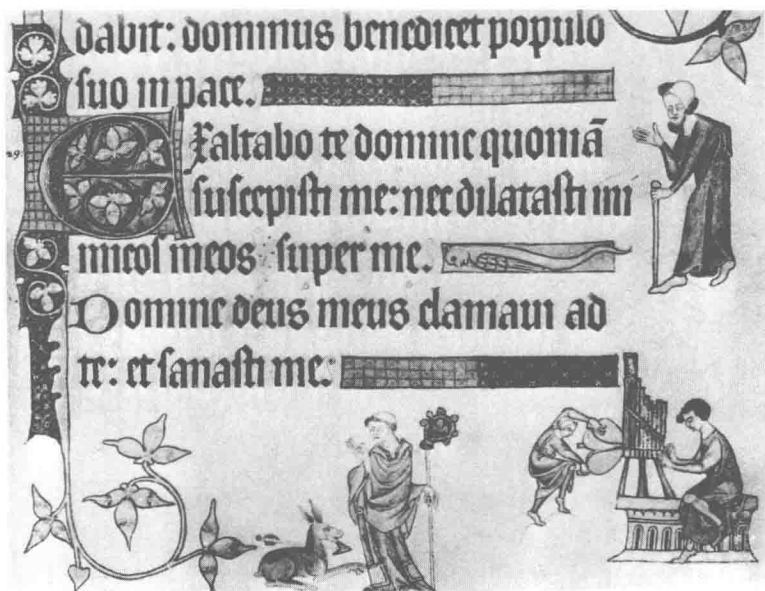 dabit: dominus benedicet populo
suo in pace.
29 Exaltabo te domine quoniā
suscepisti me: nec dilatasti ini
micos meos super me.
Domine deus meus clamaui ad
te: et sanasti me: